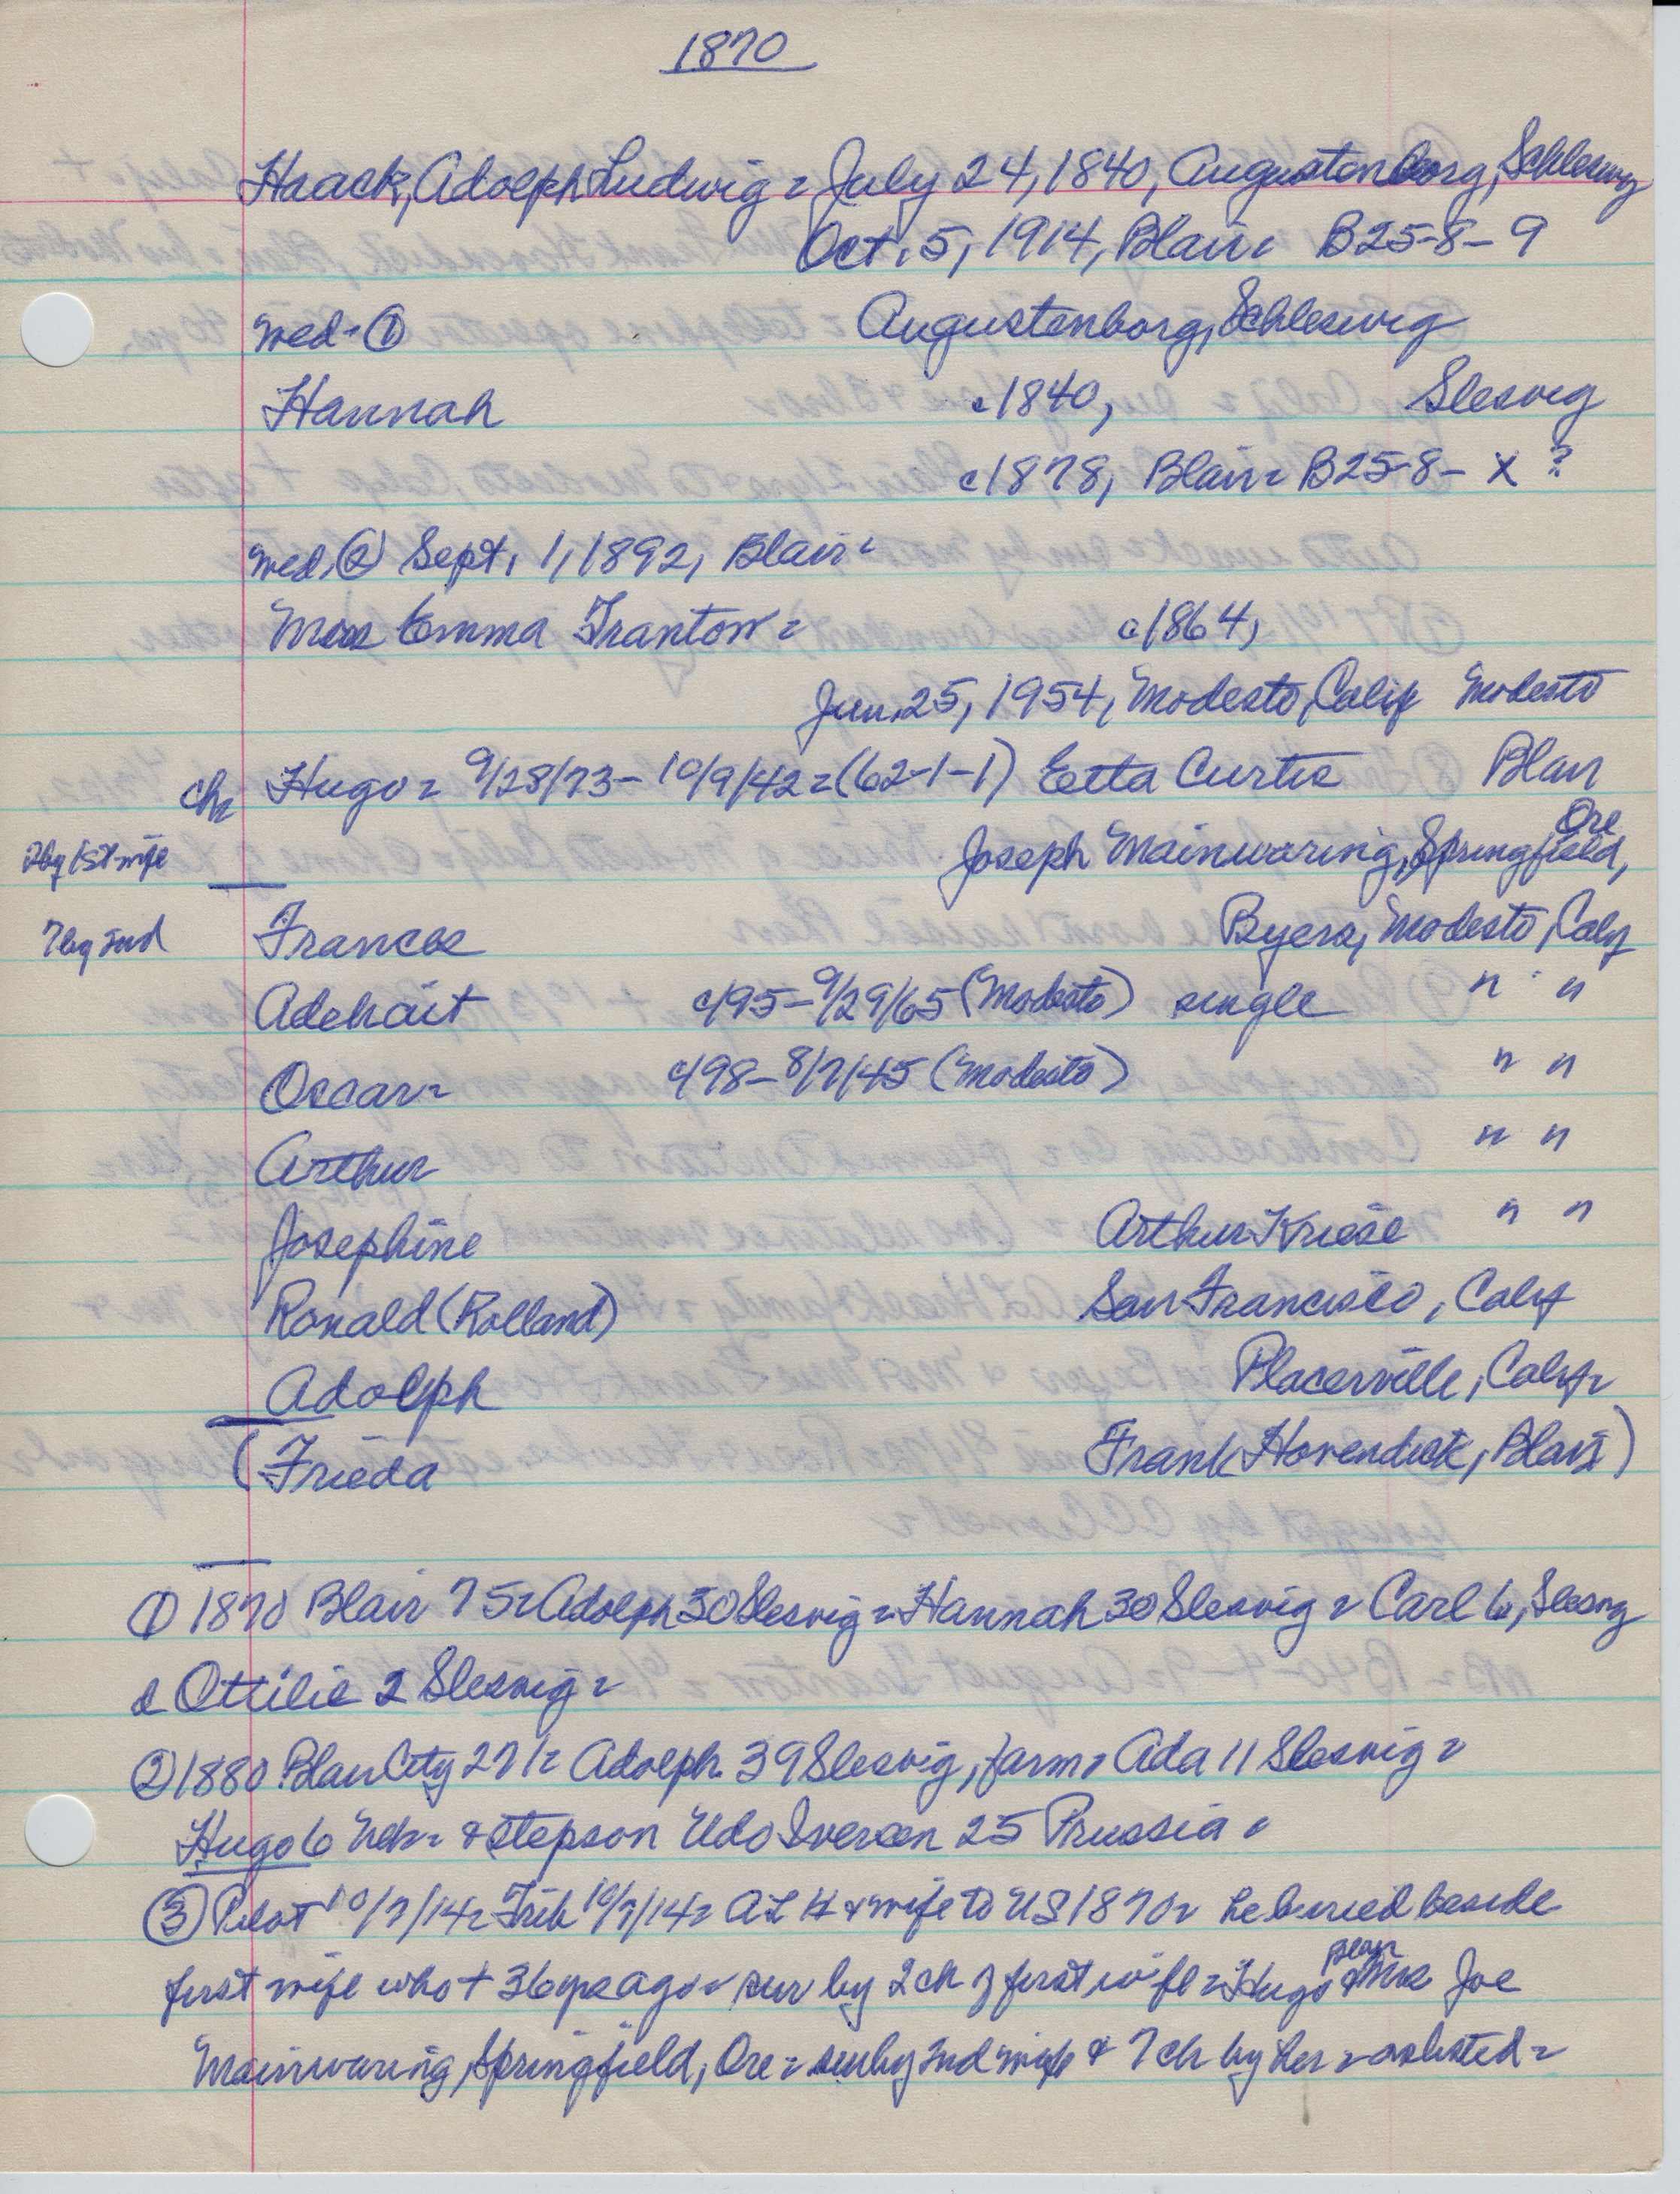 1870
Haack, Adolph Ludwig = July 24, 1840, Augustenborg, Schleswig
Oct. 5, 1914, Blair = B25-8-9
wed - ① Augustenborg, Schleswig
Hannah c1840, Slesvig
c1878, Blair = B25-8- x ?
wed. ② Sept. 1, 1892, Blair =
Miss Emma Franton = c1864,
Jun. 25, 1954, Modesto, Calif Modesto
ch Hugo = 9/28/73 - 10/9/42 = (62-1-1) Etta Curtis Blair
2 by 1st wife Joseph Mainwaring, Springfield, Ore
7 by 2nd Frances Byers, Modesto, Calif
Adehait c/95 - 9/29/65 (Modesto) single " "
Oscar = c/98 - 8/7/45 (Modesto) " "
Arthur " "
Josephine Arthur Kriese " "
Ronald (Rolland) San Francisco, Calif
Adolph Placerville, Calif =
(Frieda Frank Hovendick, Blair)
① 1870 Blair 75 = Adolph 30 Slesvig = Hannah 30 Slesvig = Carl 6, Slesvig
& Ottilie 2 Slesvig =
② 1880 Blair City 271 = Adolph 39 Slesvig, farm = Ada 11 Slesvig =
Hugo 6 Neb = & stepson Udo Iversen 25 Prussia =
③ Pilot 10/7/14 = Trib 10/7/14 = A L H & wife to US 1870 = he buried beside
first wife who + 36 yrs ago = sur by 2 ch of first wife = Hugo Blair & Mrs Joe
Mainwaring, Springfield, Ore = sur by 2nd wife & 7 ch by her = as listed =